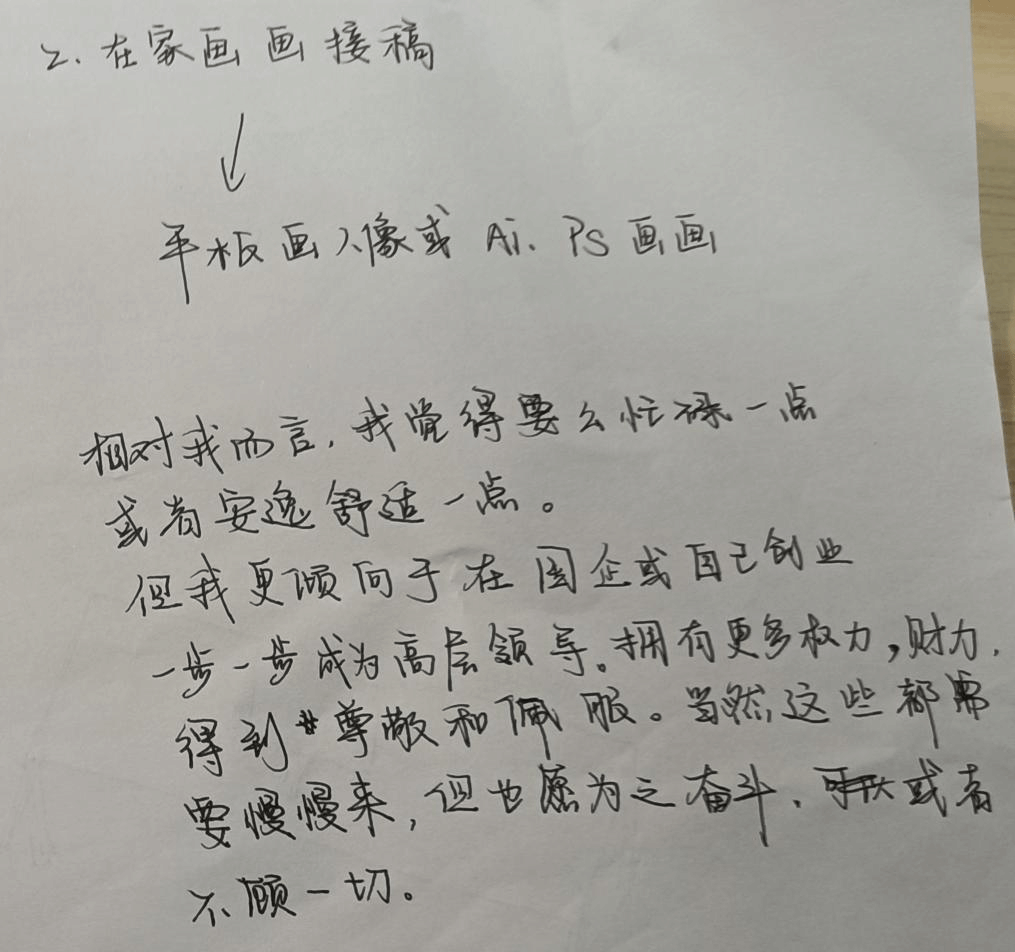 2. 在家画画接稿
平板画人像或 Ai. Ps 画画
相对我而言, 我觉得要么忙碌一点
或者安逸舒适一点。
但我更倾向于在国企或自己创业
一步一步成为高层领导。拥有更多权力,财力,
得到尊敬和佩服。当然,这些都需
要慢慢来, 但也愿为之奋斗、或者
不顾一切。